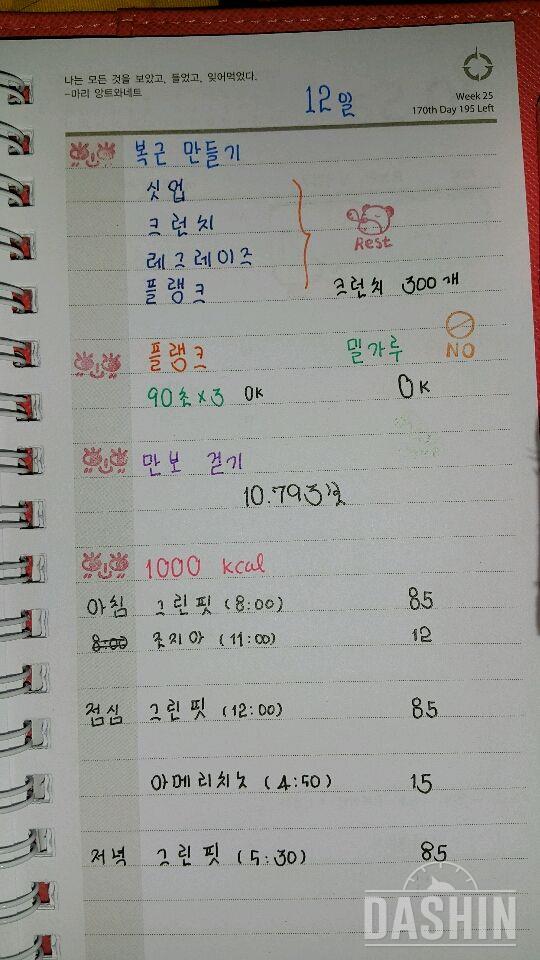 나는 모든 것을 보았고, 들었고, 잊어먹었다.
-마리 앙트와네트
12일
Week 25
170th Day 195 Left
복근 만들기
싯업
크런치
레그레이즈
플랭크
Rest
크런치 300개
플랭크
밀가루
NO
90초×3 OK
OK
만보 걷기
10.793보
1000 kcal
아침 그린핏 (8:00) 85
8:00 조지아 (11:00) 12
점심 그린핏 (12:00) 85
아메리치노 (4:50) 15
저녁 그린핏 (5:30) 85
DASHIN